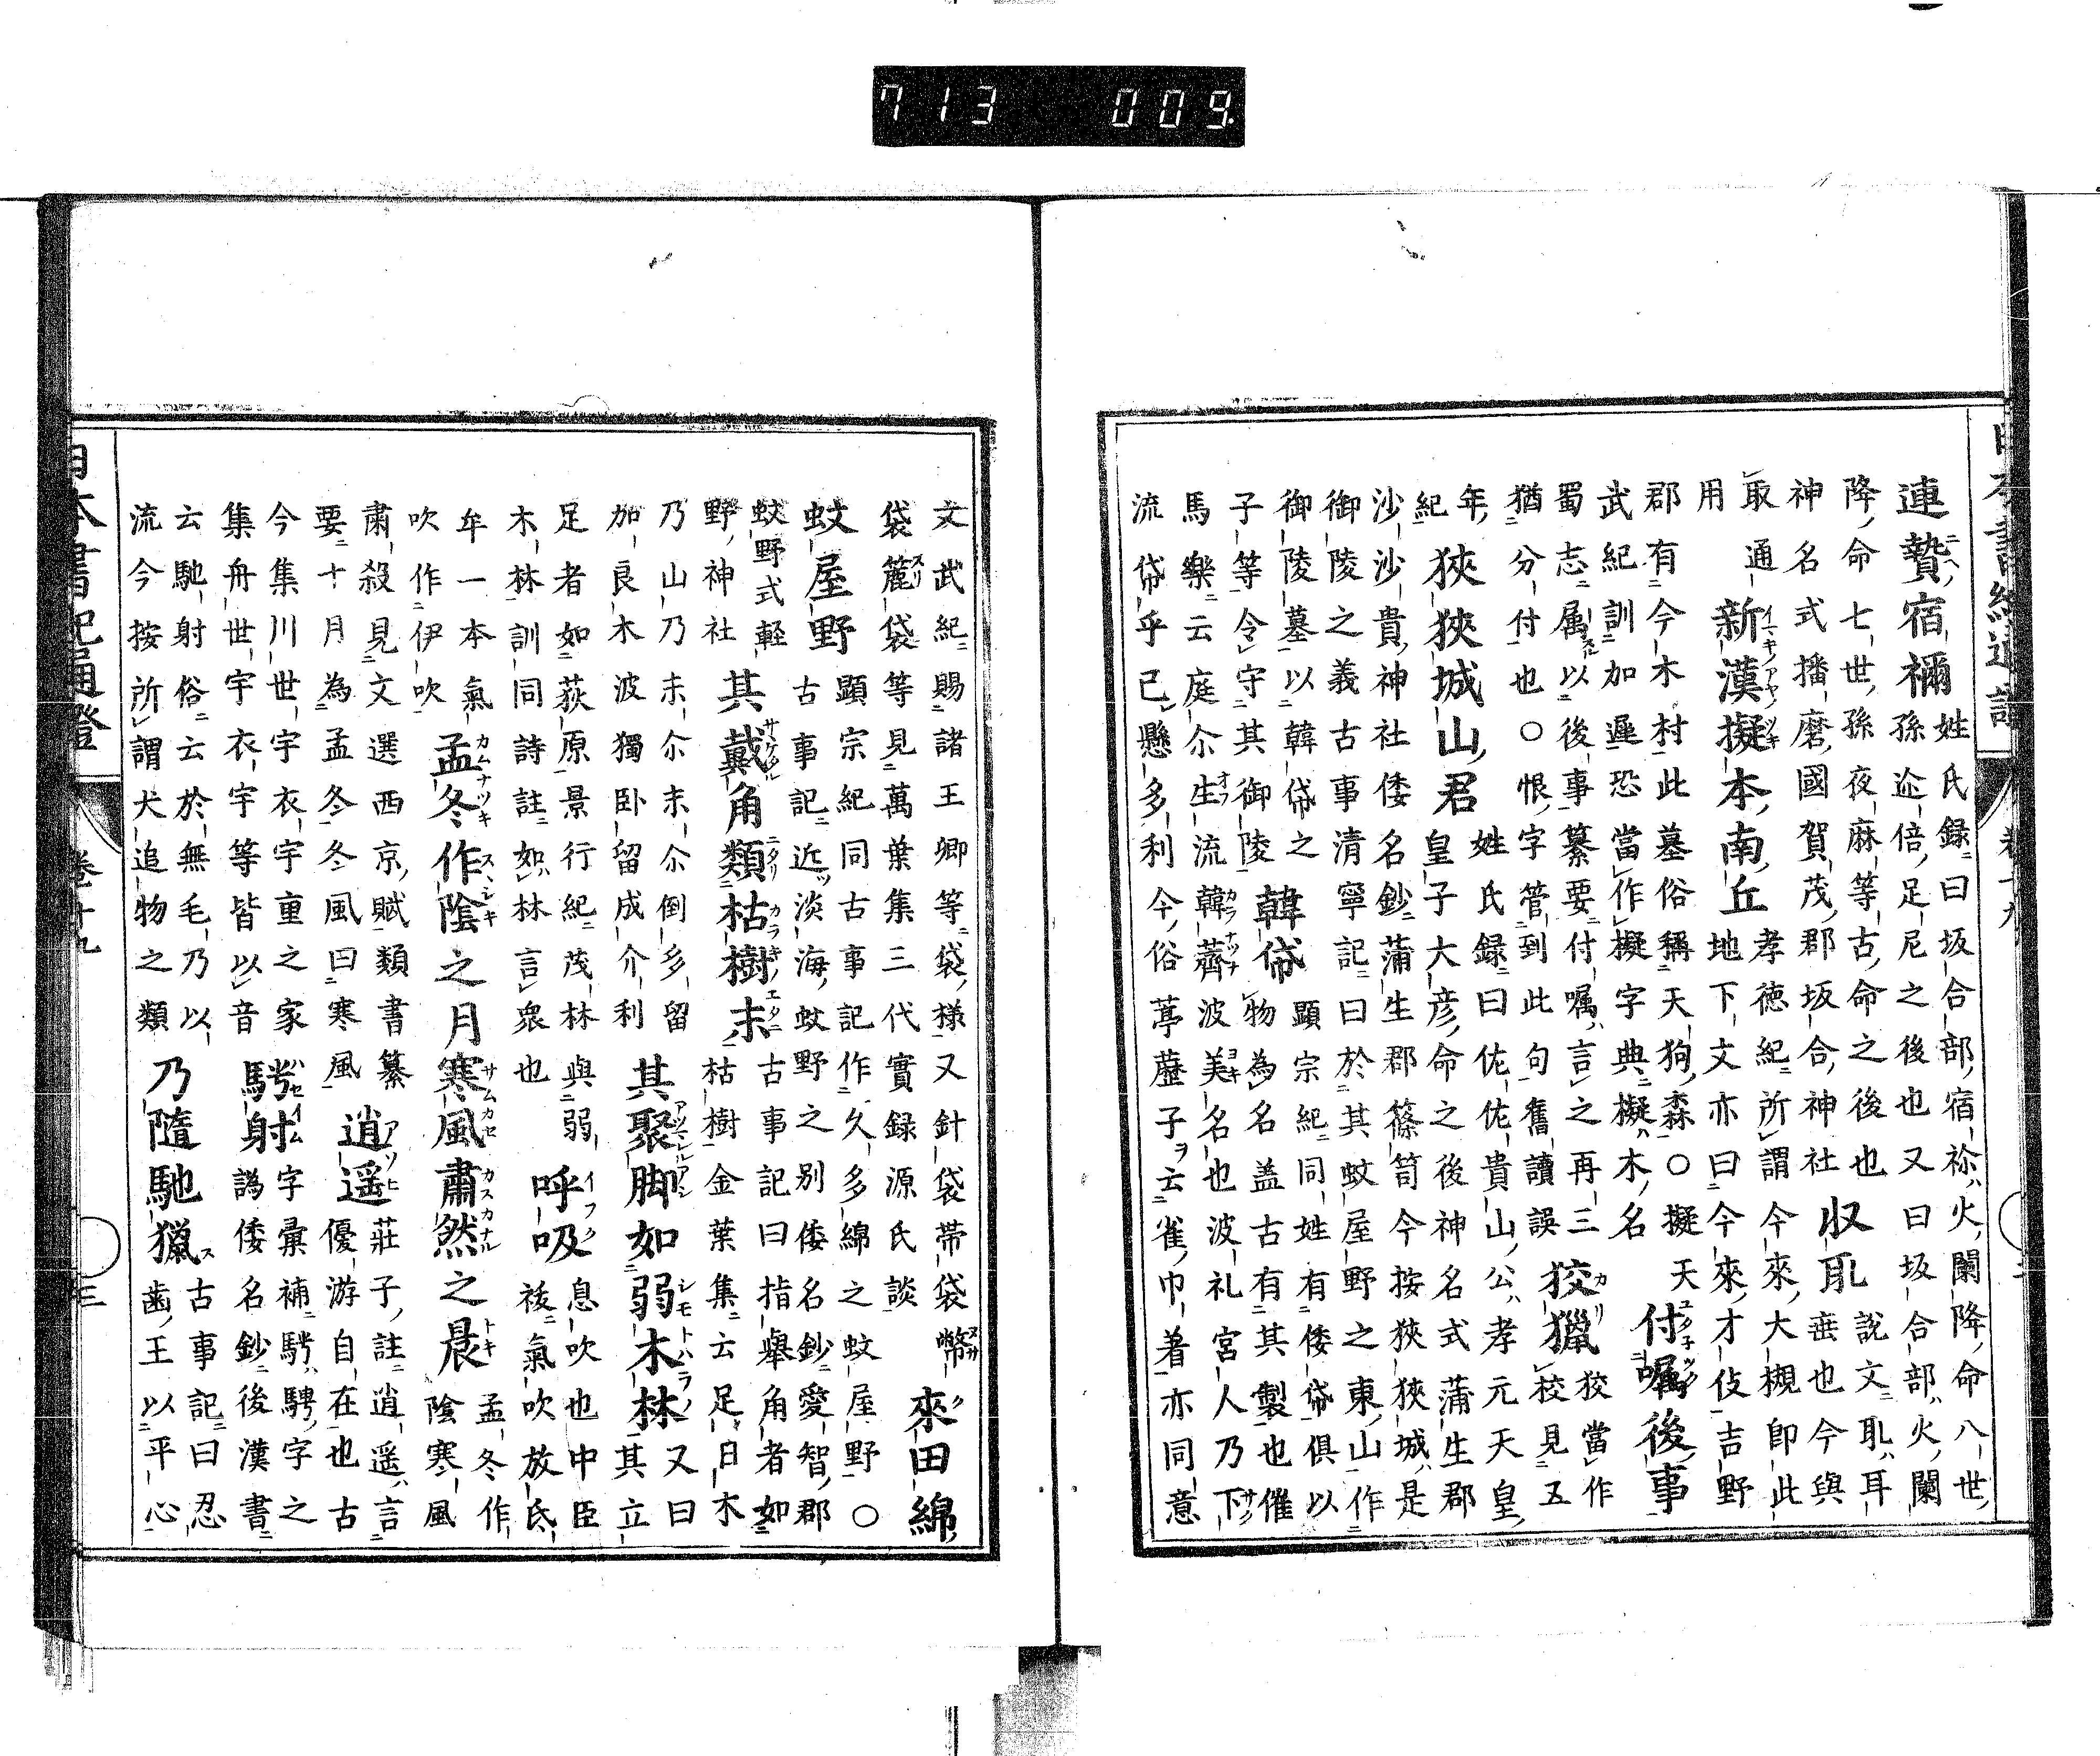 713 009
連贄宿禰姓氏録曰坂合部宿祢火闌降命八世
孫迩倍足尼之後也又曰坂合部火闌
降命七世孫夜麻等古命之後也収㽵說文耴耳
神名式播磨國賀茂郡坂合神社垂也今與
取通新漢擬本南丘孝徳紀所謂今來大槻即此
用地下文亦曰今來才伎吉野
郡有今木村此墓俗稱天狗森○擬天付嘱後事
武紀訓加遲恐當作擬字典擬木名
蜀志属以後事纂要付嘱言之再三狡獵狡當作
猶分付也○恨字管到此句舊讀誤校見五
年紀狹狹城山君姓氏録曰佐佐貴山公孝元天皇
皇子大彦命之後神名式蒲生郡
沙沙貴神社倭名鈔蒲生郡篠笥今按狹狹城是
御陵之義古事清寧記曰於其蚊屋野之東山作
御陵墓以韓帒之顯宗紀同姓有倭帒俱以
子等令守其御陵韓帒物為名盖古有其製也催
馬樂云庭尒生流韓薺波美名也波礼宮人乃下
流帒乎已懸多利今俗葶藶子云雀巾着亦同意
文武紀賜諸王卿等袋樣又針袋帯袋幣來田綿
袋簏袋等見萬葉集三代實録源氏談
蚊屋野顯宗紀同古事記作久多綿之蚊屋野○
古事記近淡海蚊野之别倭名鈔愛智郡
蚊野式軽其戴角類枯樹末古事記曰指舉角者如
野神社枯樹金葉集云足日木
乃山乃末尒末尒倒多留其聚脚如弱木林又曰
加良木波獨卧留成介利其立
足者如荻原景行紀茂林與弱呼吸息吹也中臣
木林訓同詩註如林言衆也祓氣吹放氐
牟一本氣孟冬作陰之月寒風肅然之晨孟冬作
吹作伊吹陰寒風
肅殺見文選西京賦類書纂逍遥莊子註逍遥言
要十月為孟冬冬風曰寒風優游自在也古
今集川世宇衣宇重之家騁射字彙補騁騁字之
集舟世宇衣宇等皆以音譌倭名鈔後漢書
云馳射俗云於無毛乃以乃隨馳獵古事記曰忍
流今按所謂犬追物之類歯王以平心
日本書紀通證 卷十九 三